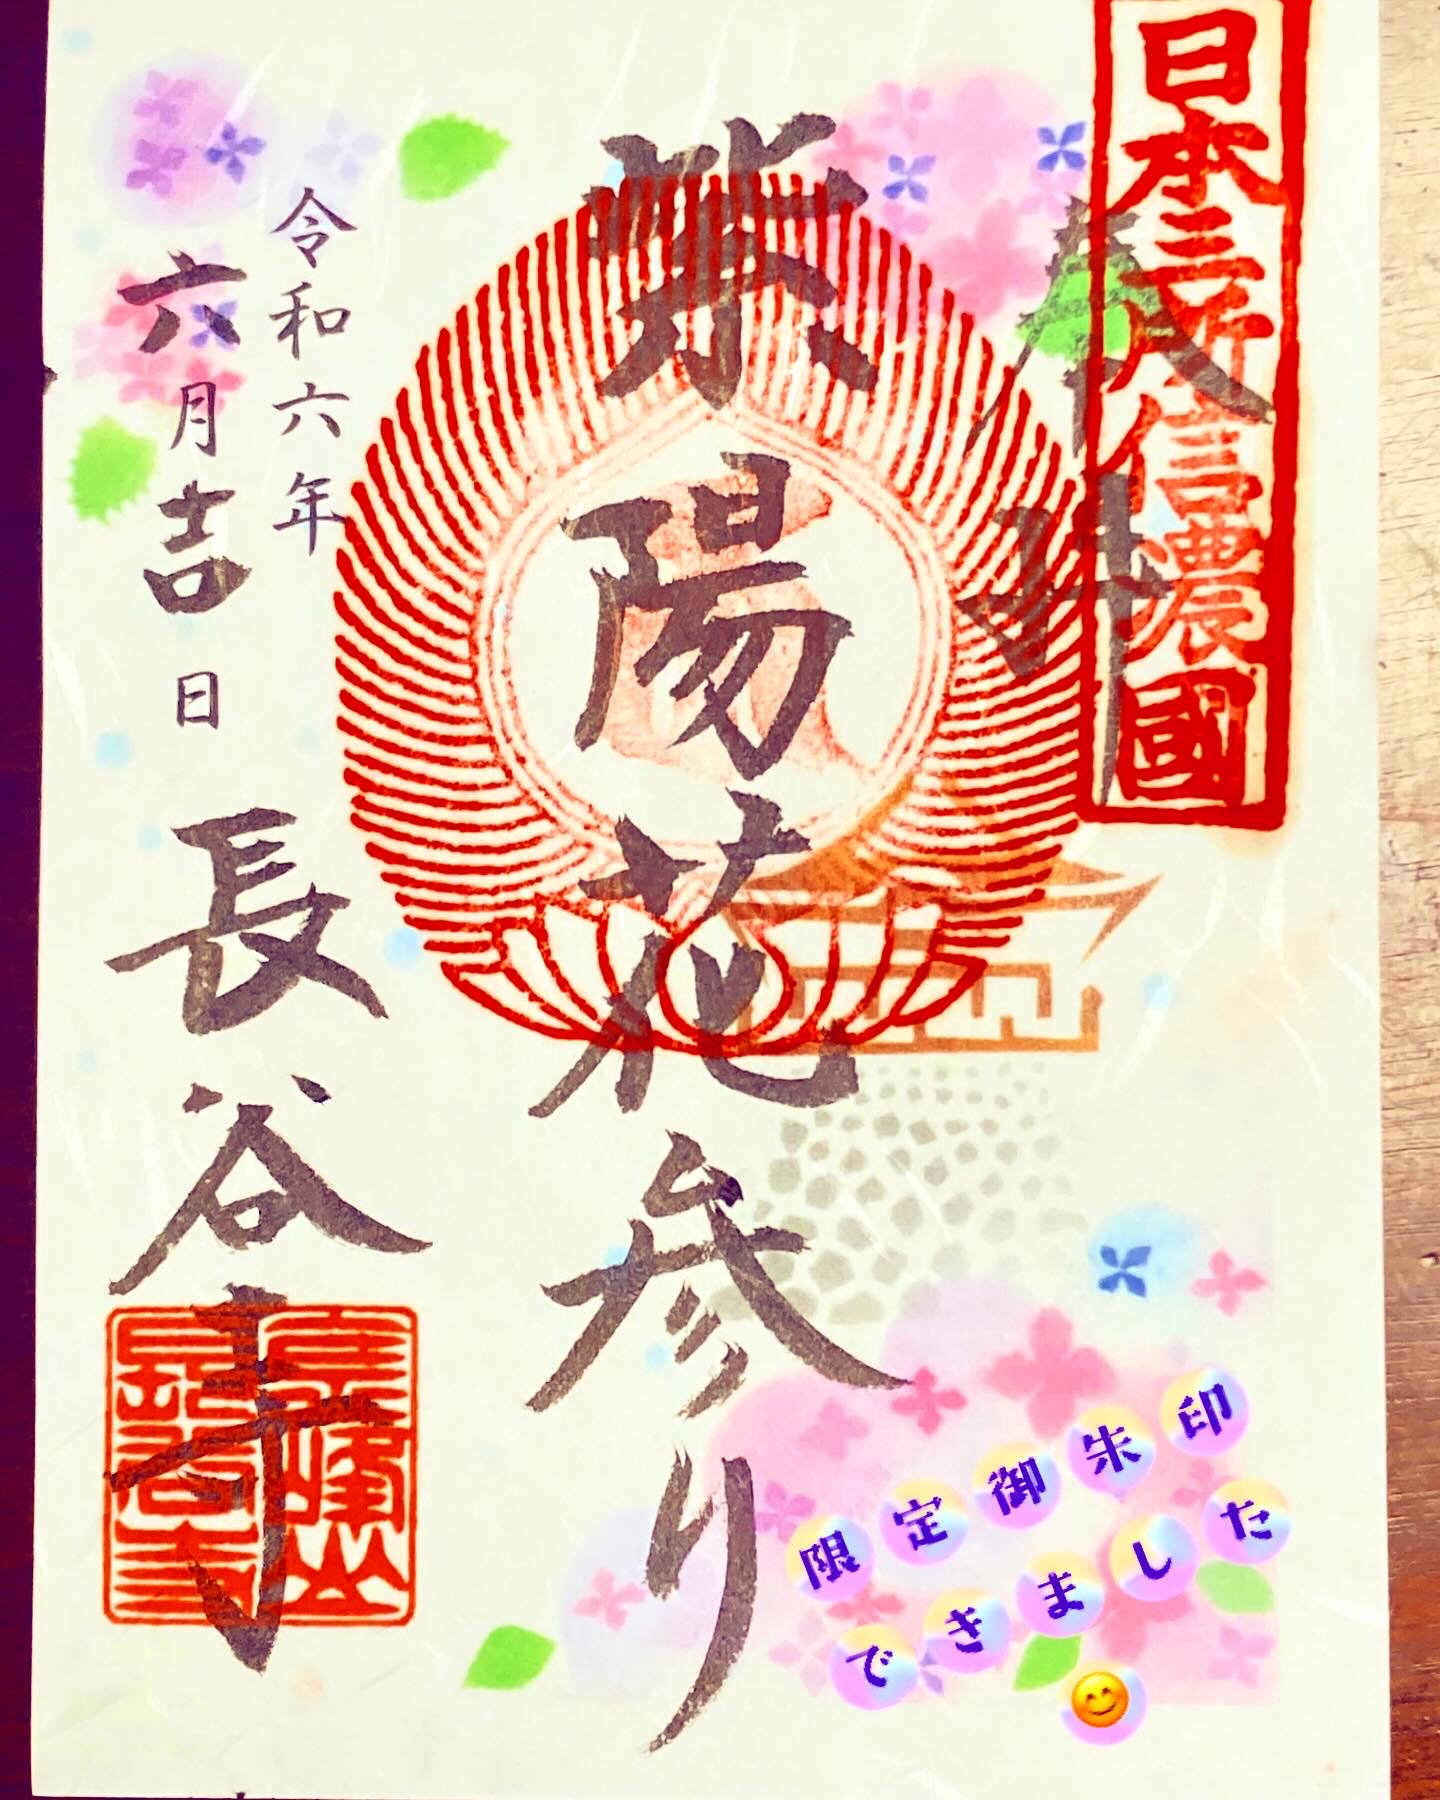 日本三所信濃國
奉拝
紫陽花参り
令和六年
六月吉日
長谷寺
限定御朱印
できました